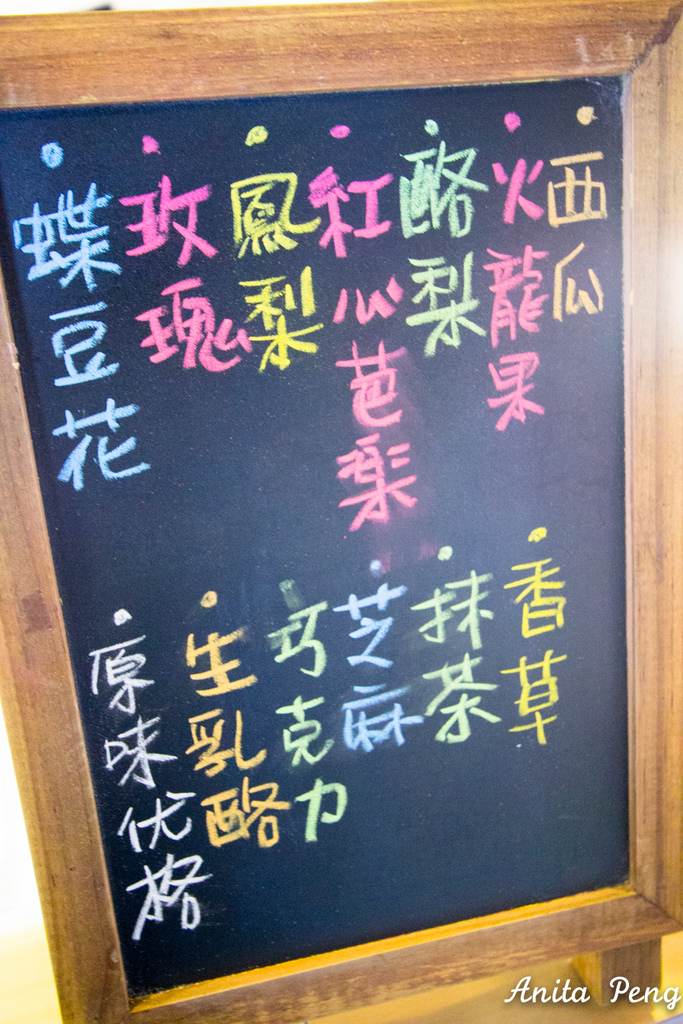 西瓜
火龍果
酪梨
紅心芭樂
鳳梨
玫瑰
蝶豆花
香草
抹茶
芝麻
巧克力
生乳酪
原味优格
Anita Peng